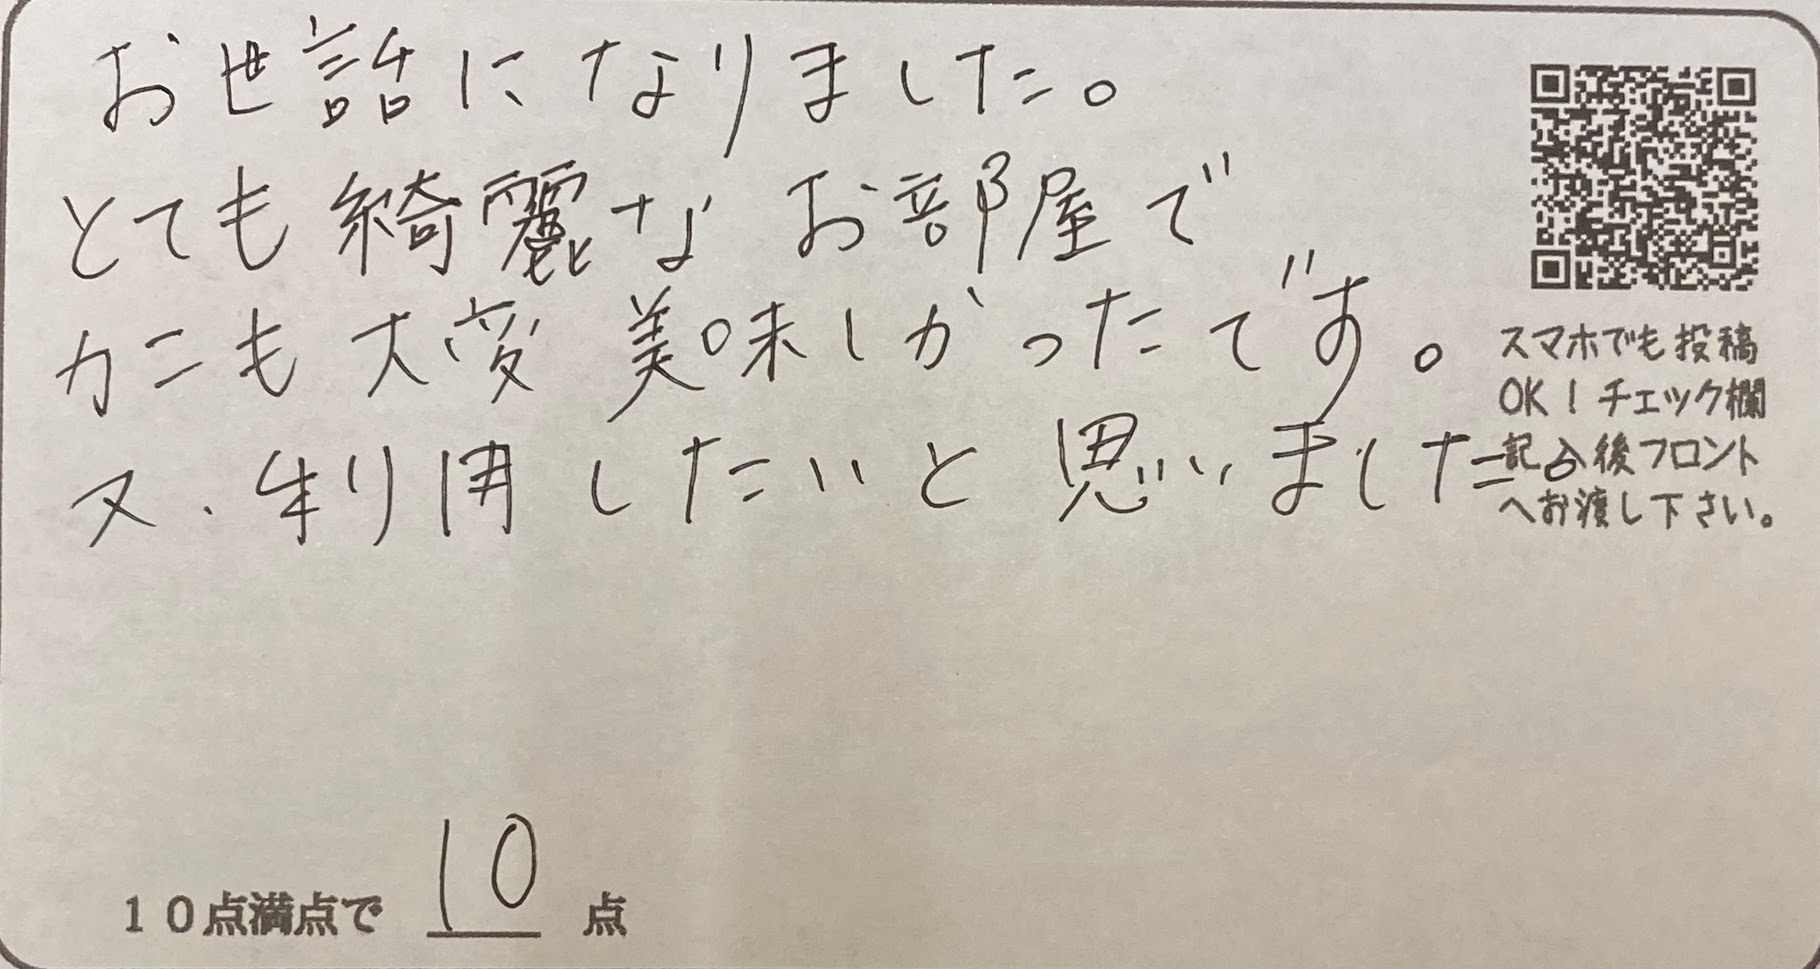 お世話になりました。
とても綺麗なお部屋で
カニも大変美味しかったです。
又、利用したいと思いました。
スマホでも投稿
OK！チェック欄
記入後フロント
へお渡し下さい。
10点満点で 10 点